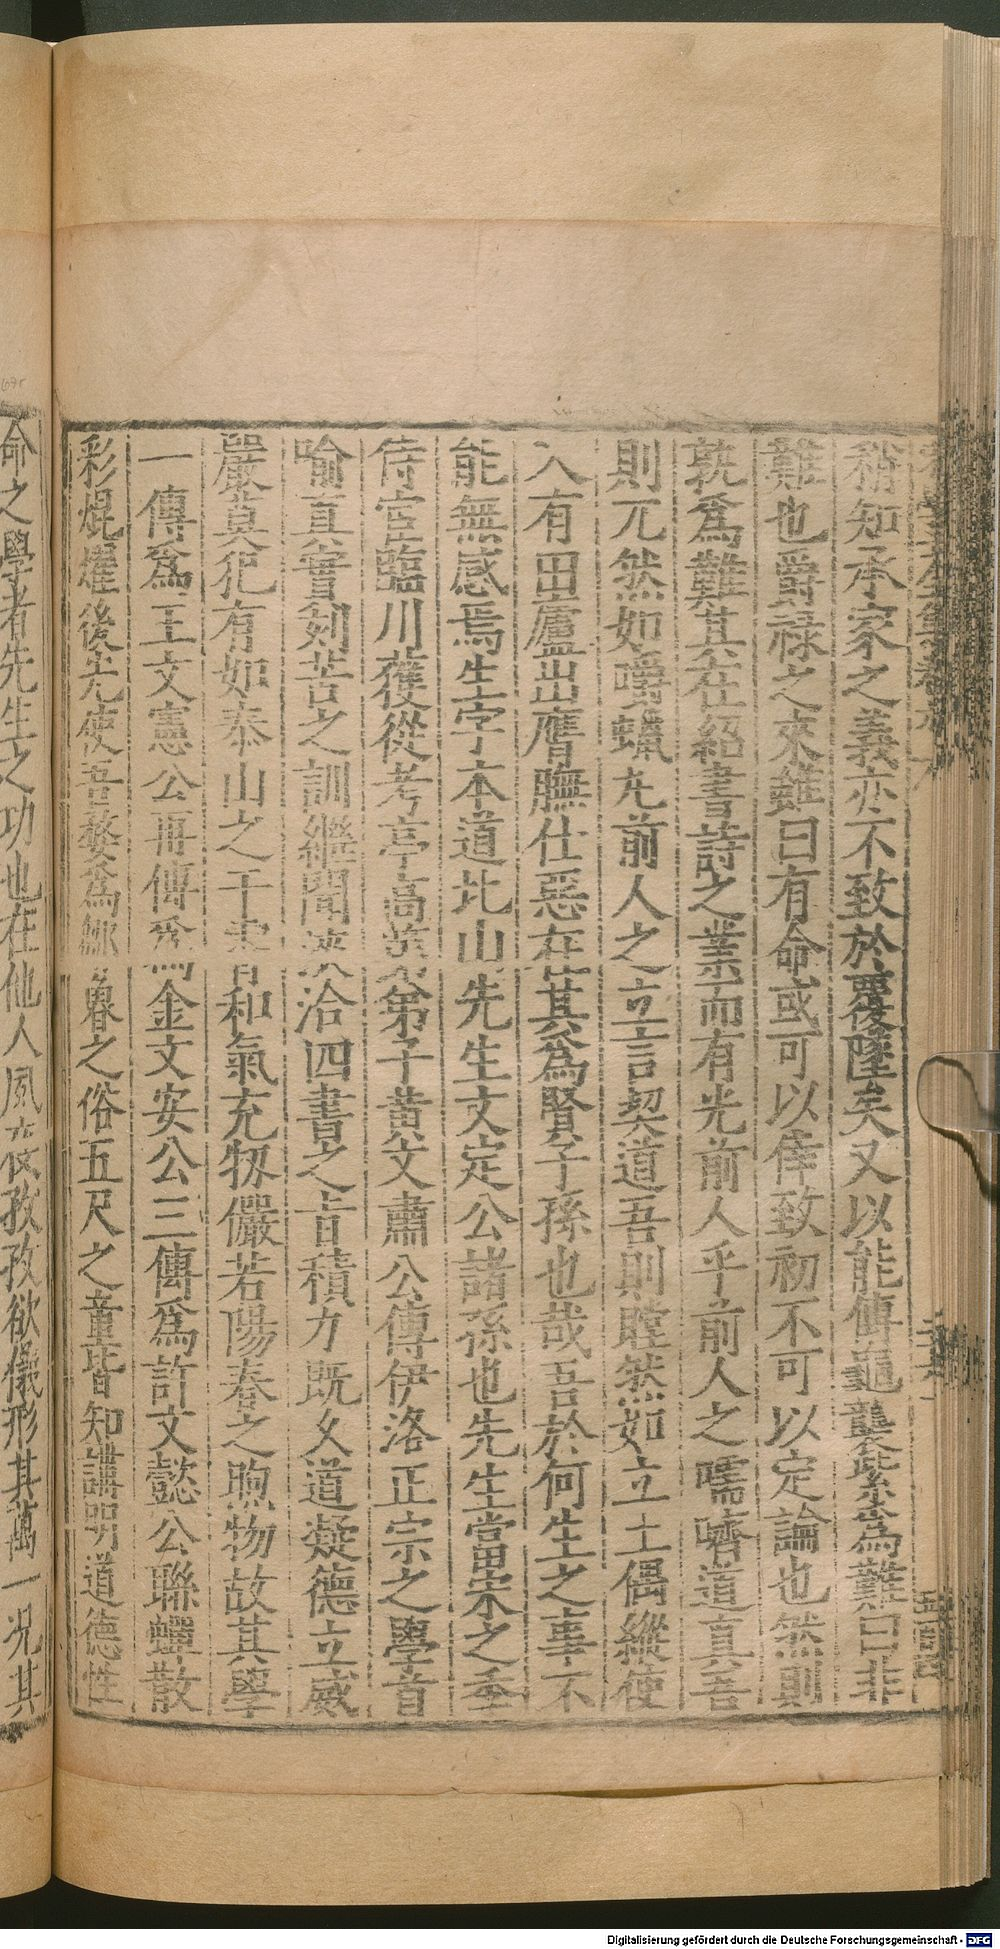 稍知承家之義亦不致於覆墜矣又以能傳龜襲紫為難曰非
難也爵祿之來雖曰有命或可以倖致初不可以定論也然則
孰為難其在紹書詩之業而有光前人乎前人之嚅嚌道真吾
則兀然如嚼蠟尢前人之立言契道吾則瞠然如立土偶縱使
入有田廬出膺膴仕惡在其為賢子孫也哉吾於何生之事不
能無感焉生字本道北山先生文定公諸孫也先生當宋之季
侍宦臨川獲從考亭高弟弟子黃文肅公傳伊洛正宗之學首
喻真實刻苦之訓繼聞浹洽四書之旨積力既久道凝德立威
嚴莫犯有如泰山之干霄和氣充牣儼若陽春之煦物故其學
一傳爲王文憲公再傳爲金文安公三傳爲許文懿公聯蟬散
彩焜燿後先使吾婺爲鄒魯之俗五尺之童皆知講明道德性
命之學者先生之功也在他人風夜孜孜欲儀形其萬一況其
Digitalisierung gefördert durch die Deutsche Forschungsgemeinschaft - DFG